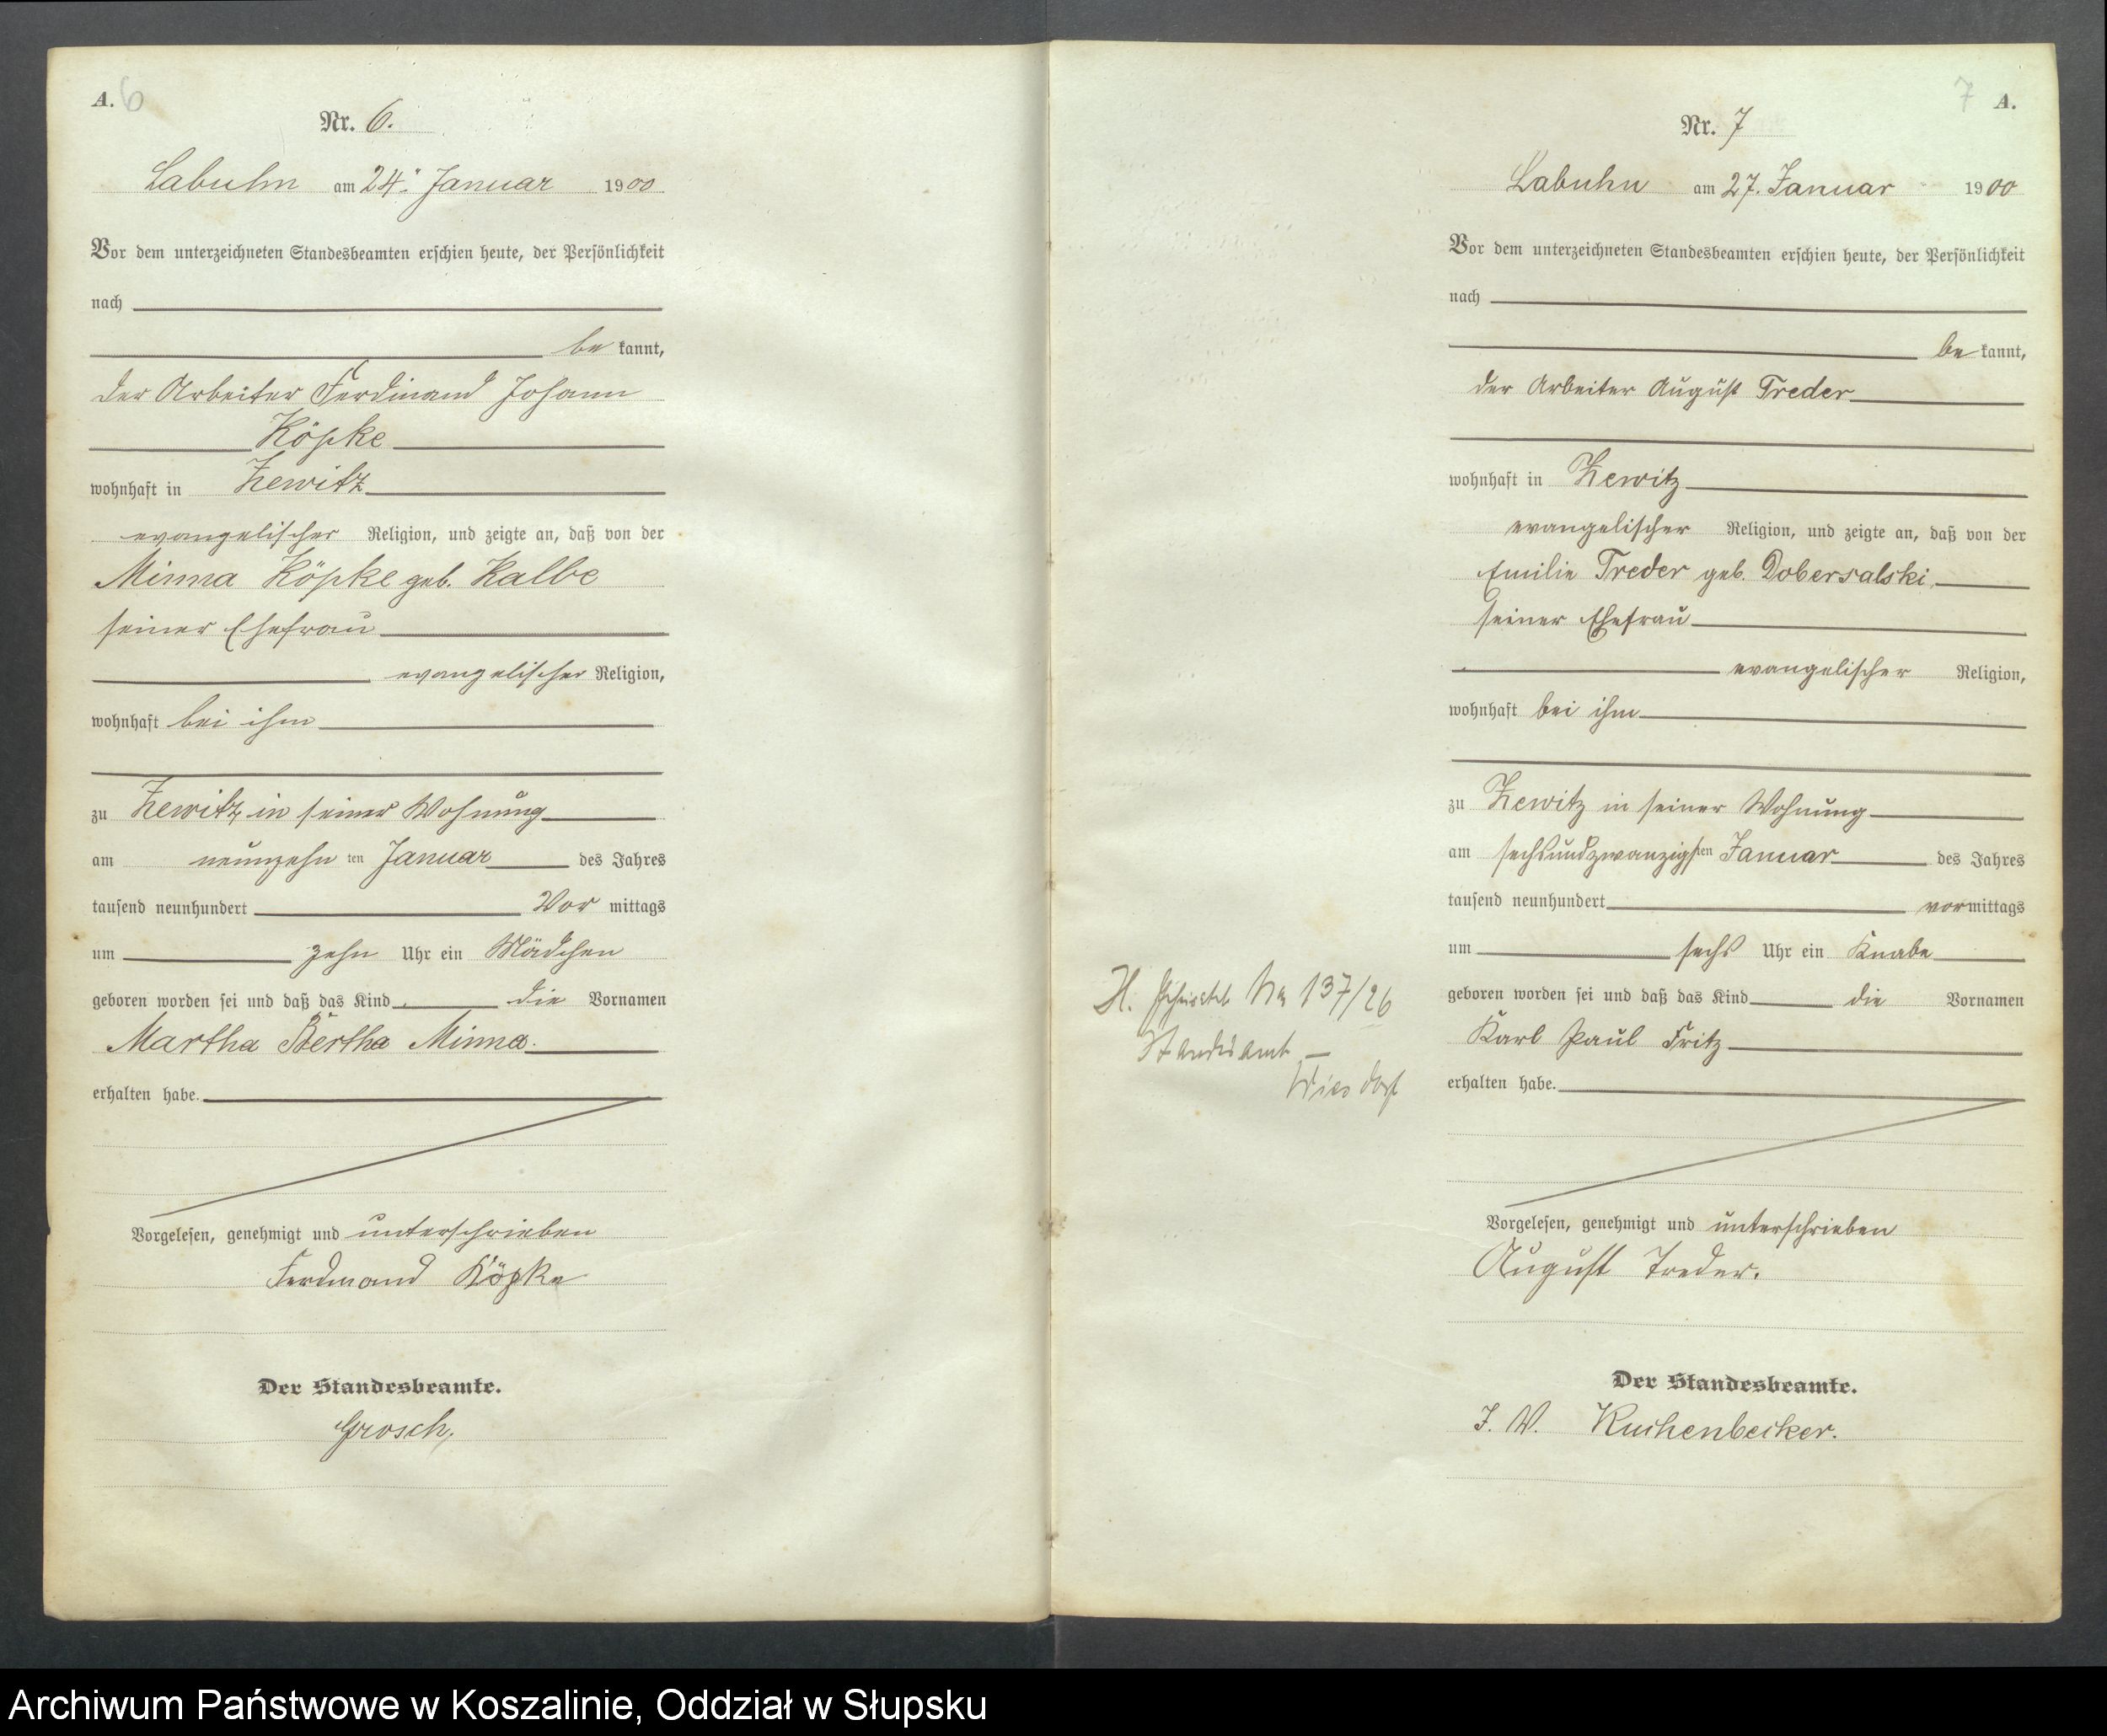 A. 6
Nr. 6.
Labuhn am 24. Januar 1900
Vor dem unterzeichneten Standesbeamten erschien heute, der Persönlichkeit
nach
be kannt,
der Arbeiter Ferdinand Johann
Köpke
wohnhaft in Zewitz
evangelischer Religion, und zeigte an, daß von der
Minna Köpke geb. Kalbe
seiner Ehefrau
evangelischer Religion,
wohnhaft bei ihm
zu Zewitz in seiner Wohnung
am neunzehn ten Januar des Jahres
tausend neunhundert Vor mittags
um zehn Uhr ein Mädchen
geboren worden sei und daß das Kind die Vornamen
Martha Bertha Minna.
erhalten habe.
Vorgelesen, genehmigt und unterschrieben
Ferdinand Köpke
Der Standesbeamte.
Grosch.
7 A.
Nr. 7
Labuhn am 27. Januar 1900
Vor dem unterzeichneten Standesbeamten erschien heute, der Persönlichkeit
nach
be kannt,
der Arbeiter August Treder
wohnhaft in Zewitz
evangelischer Religion, und zeigte an, daß von der
Emilie Treder geb. Dobersalski
seiner Ehefrau
evangelischer Religion,
wohnhaft bei ihm
zu Zewitz in seiner Wohnung
am sechsundzwanzigsten Januar des Jahres
tausend neunhundert vormittags
um sechs Uhr ein Knabe
geboren worden sei und daß das Kind die Vornamen
Karl Paul Fritz
erhalten habe.
H. No 137/26
Standesamt
Wiesdorf
Vorgelesen, genehmigt und unterschrieben
August Treder.
Der Standesbeamte.
J. V. Kuchenbecker.
Archiwum Państwowe w Koszalinie, Oddział w Słupsku